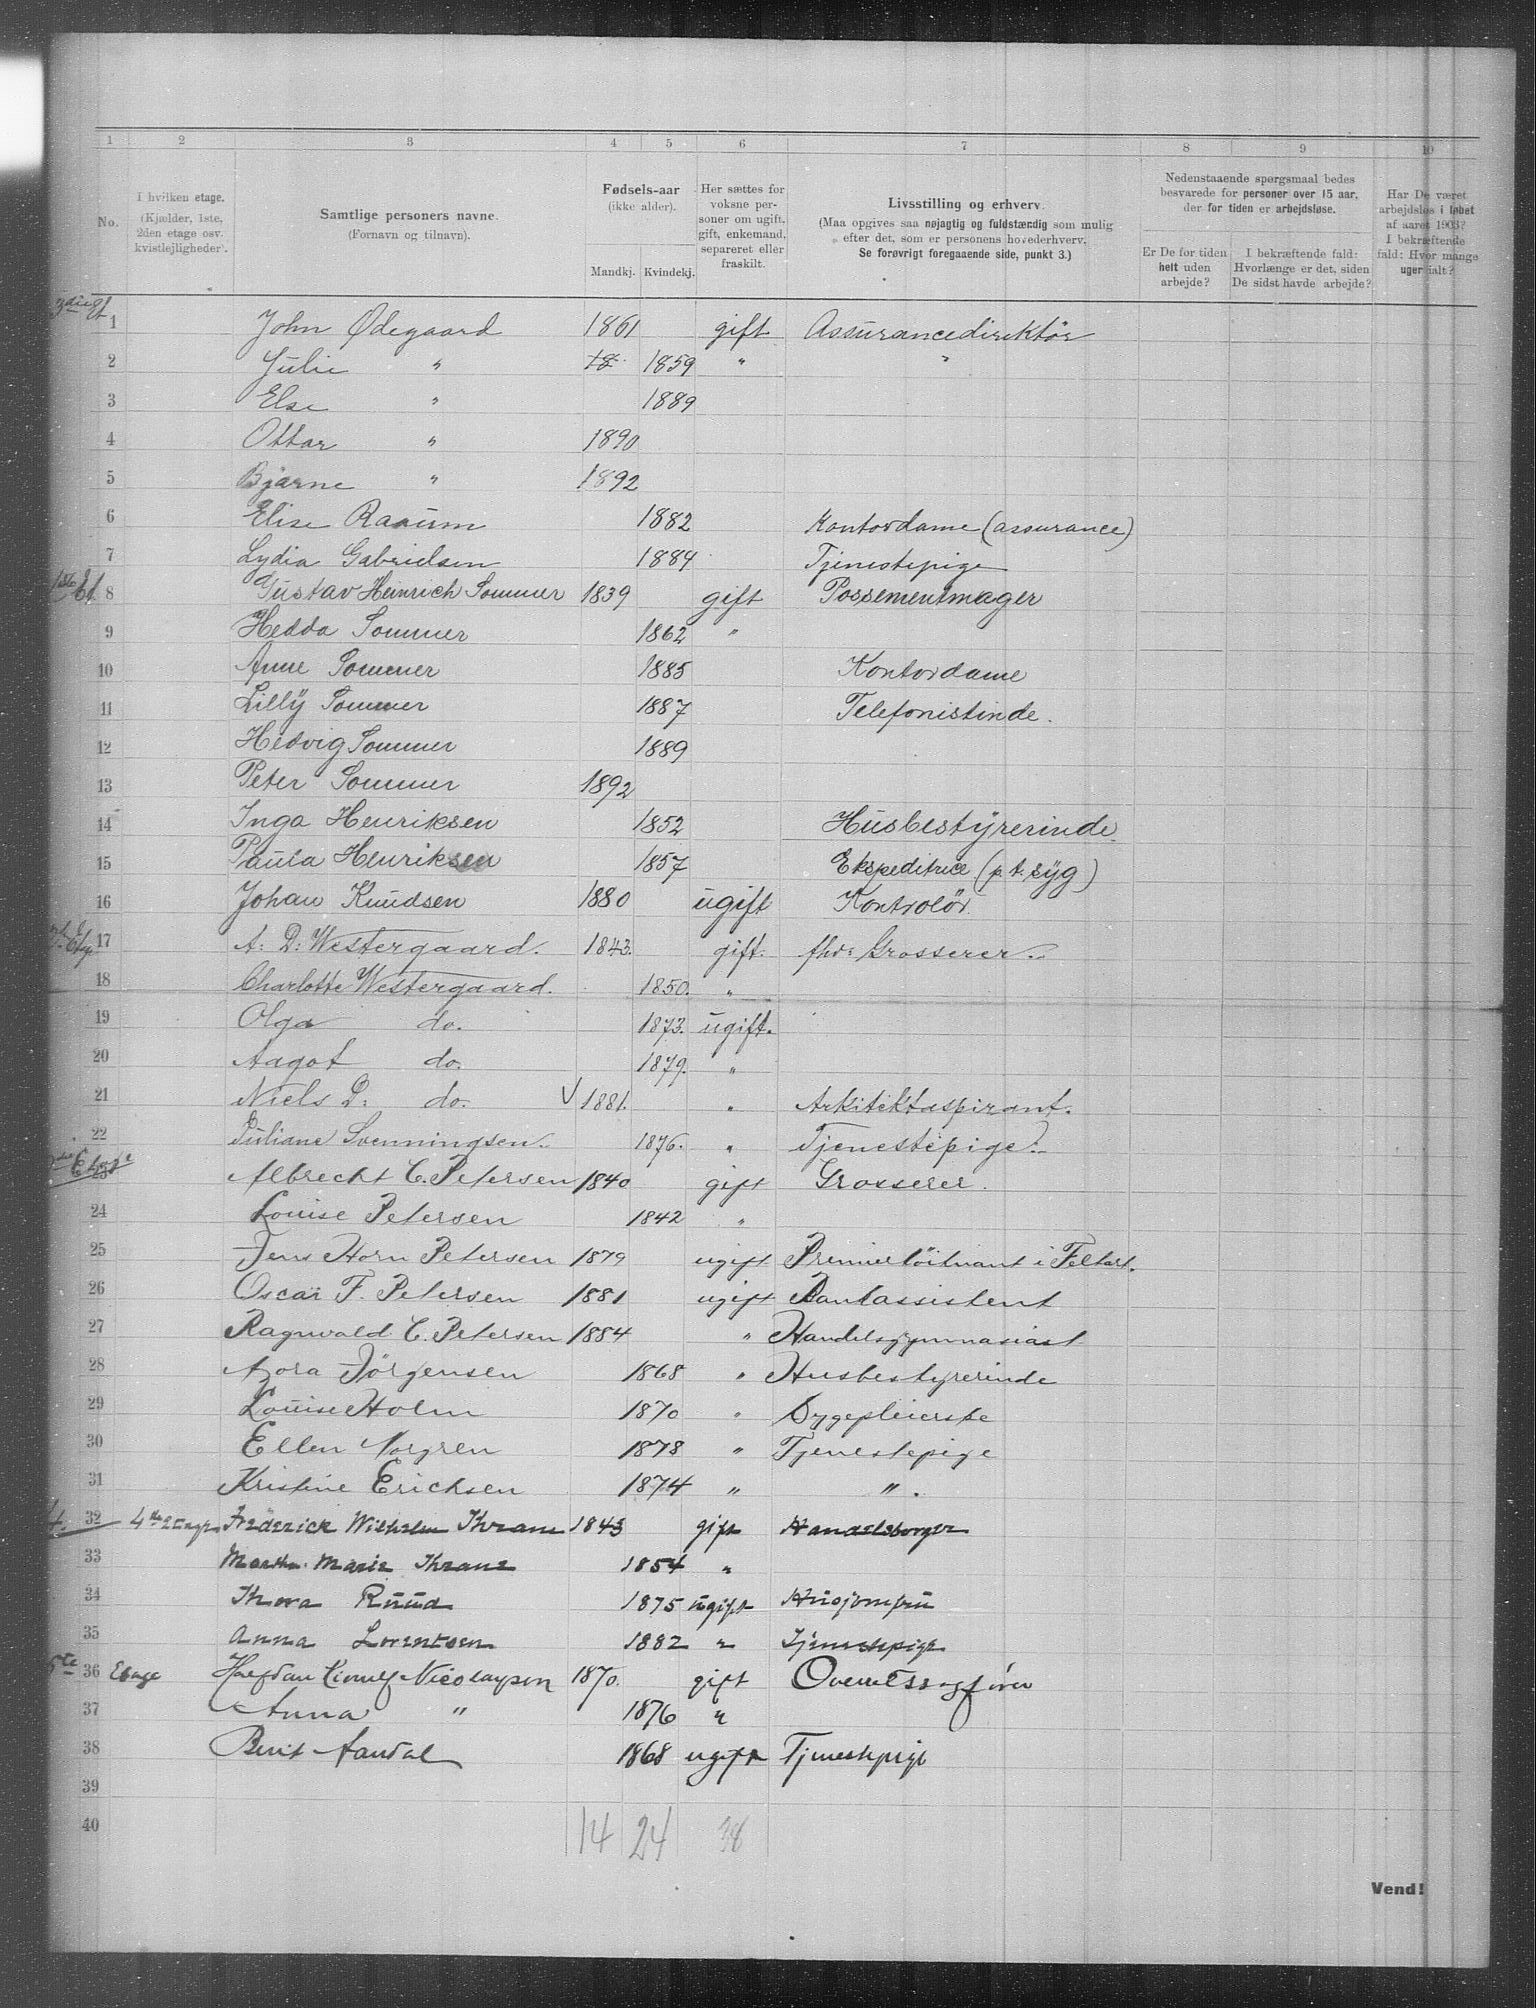 1 2 3 4 5 6 7 8 9 10
No.
I hvilken etage.
(Kjælder, 1ste,
2den etage osv.
kvistleiligheder).
Samtlige personers navne.
(Fornavn og tilnavn).
Fødsels-aar
(ikke alder).
Mandkj. Kvindekj.
Her sættes for
voksne per-
soner om ugift,
gift, enkemand,
separeret eller
fraskilt.
Livsstilling og erhverv.
(Maa opgives saa nøjagtig og fuldstændig som mulig
efter det, som er personens hovederhverv.
Se forøvrigt foregaaende side, punkt 3.)
Nedenstaaende spørgsmaal bedes
besvarede for personer over 15 aar,
der for tiden er arbejdsløse.
Er De for tiden
helt uden
arbejde?
I bekræftende fald:
Hvorlænge er det, siden
De sidst havde arbejde?
Har De været
arbejdsløs i løbet
af aaret 1903?
I bekræftende
fald: Hvor mange
uger ialt?
1 John Ødegaard 1861 gift Assurancedirektör
2 Julie " 18 1859 " "
3 Else " 1889
4 Ottar " 1890
5 Bjarne " 1892
6 Elise Raaum 1882 Kontordame (assurance)
7 Lydia Gabrielsen 1884 Tjenestepige
1ste Et 8 Gustav Heinrich Sommer 1839 gift Possementmager
9 Hedda Sommer 1862 "
10 Anne Sommer 1885 Kontordame
11 Lilly Sommer 1887 Telefonistinde.
12 Hedvig Sommer 1889
13 Peter Sommer 1892
14 Inga Henriksen 1852 Husbestyrerinde
15 Paula Henriksen 1857 Ekspeditrice (p.t. syg)
16 Johan Knudsen 1880 ugift Kontrolör.
17 A: D: Westergaard. 1843. gift. fhv: Grosserer.
18 Charlotte Westergaard. 1850. "
19 Olga do. 1873. ugift.
20 Aagot do. 1879. "
21 Niels D: do. V 1881. " Arkitektaspirant.
22 Juliane Svenningsen. 1876. " Tjenestepige.
23 Albrecht C. Petersen 1840 gift Grosserer.
24 Louise Petersen 1842 "
25 Jens Horn Petersen 1879 ugift Premierlöitnant i Feltart.
26 Oscar F. Petersen 1881 ugift Bankassistent
27 Ragnvald C. Petersen 1884 " Handelsgymnasiast
28 Azora Jörgensen 1868 " Husbestyrerinde
29 Louise Holm 1870 " Sygepleierske
30 Ellen Norgren 1878 " Tjenestepige
31 Kristine Ericksen 1874 " " .
4. 32 4de Etage Fredérick Wilhelm Thrane 1843 gift Handelsborger
33 Martha Marie Thrane 1854 "
34 Thora Ruud 1875 ugift Husjomfru
35 Anna Lorentsen 1882 " Tjenestepige
5te 36 Etage Halfdan Nicolaysen 1870. gift Overretssagfører
37 Anna " 1876 "
38 Berit Aandal 1868 ugift Tjenestepige
39
40
14 24 38
Vend!